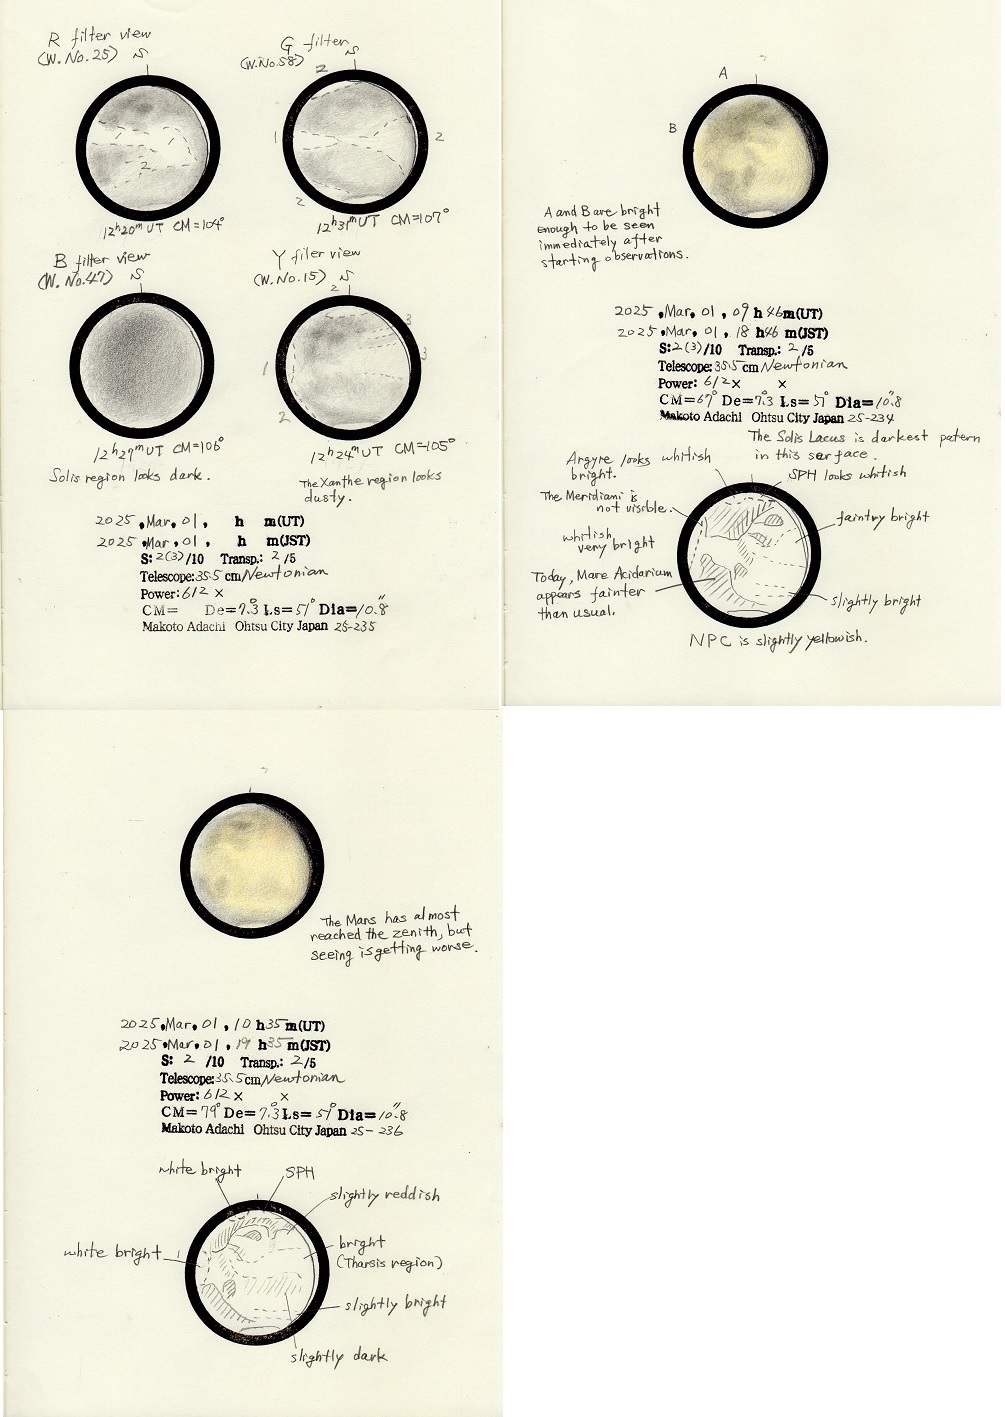 R filter view
(W. No. 25)
S
12h20m UT CM=104°
2
G filter
(W.No.58)
S
2
1
2
2
12h31m UT CM=107°
B filter view
(W. No.47)
S
12h27m UT CM=106°
Solis region looks dark.
Y filer view
(W. No.15)
S
2
3
3
1
2
12h24m UT CM=105°
The Xanthe region looks
dusty.
2025 .Mar. 01 , h m(UT)
2025 .Mar. 01 , h m(JST)
S: 2(3)/10 Transp.: 2 /5
Telescope: 35.5 cm Newtonian
Power: 612 ×
CM= De=7.3° Ls=51° Dia=10.8"
Makoto Adachi Ohtsu City Japan 25-235
A
B
A and B are bright
enough to be seen
immediately after
starting observations.
2025 .Mar. 01 , 09 h 46 m(UT)
2025 .Mar. 01 , 18 h 46 m(JST)
S: 2(3)/10 Transp.: 2 /5
Telescope: 35.5 cm Newtonian
Power: 612 × ×
CM=67° De=7.3° Ls=51° Dia=10.8"
Makoto Adachi Ohtsu City Japan 25-234
The Solis Lacus is darkest patern
in this surface.
Argyre looks whitish
bright.
SPH looks whitish
The Meridiani is
not visible.
faintry bright
whitish
very bright
Today, Mare Acidarium
appears fainter
than usual.
slightly bright
NPC is slightly yellowish.
The Mars has almost
reached the zenith, but
seeing is getting worse.
2025 .Mar. 01 , 10 h 35 m(UT)
2025 .Mar. 01 , 19 h 35 m(JST)
S: 2 /10 Transp.: 2/5
Telescope: 35.5 cm Newtonian
Power: 612 × ×
CM=79° De=7.3° Ls=51° Dia=10.8"
Makoto Adachi Ohtsu City Japan 25-236
white bright
SPH
slightly reddish
white bright
bright
(Tharsis region)
slightly bright
slightly dark